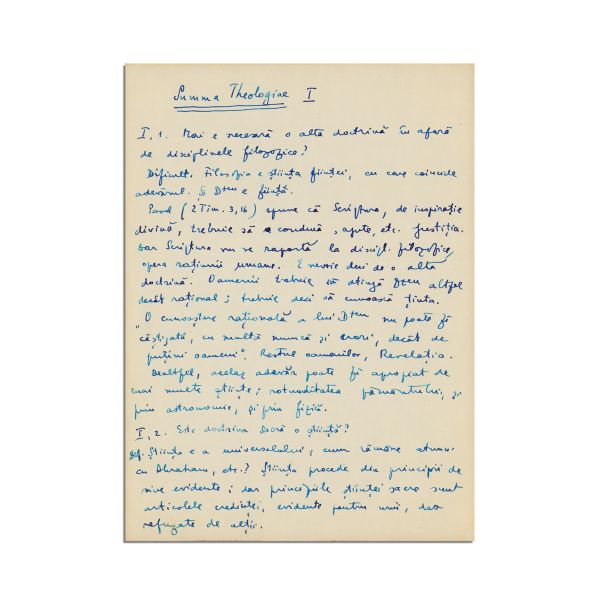 Summa Theologiae I
I, 1. Mai e necesară o altă doctrină în afară
de disciplinele filozofice?
Dificult. Filosofia e știința ființei, cu care coincide
adevărul. Și Dzeu e ființă.
Pavel (2 Tim. 3,16) spune că Scriptura, de inspirație
divină, trebuie să conducă, ajute, etc. justiția.
Dar Scriptura nu se raportă la discipl. filozofice,
opera rațiunii umane. E nevoie deci de o altă
doctrină. Oamenii trebuie să atingă Dzeu altfel
decât rațional; trebuie deci să cunoască ținta.
"O cunoaștere rațională a lui Dzeu nu poate fi
câștigată, cu multă muncă și erori, decât de
puțini oameni". Restul oamenilor, Revelația.
Dealtfel, același adevăr poate fi apropiat de
mai multe științe; rotunditatea pământului, și
prin astronomie, și prin fizică.
I, 2. Este doctrina sacră o știință?
Dif. Știința e a universalului; cum rămâne atunci
cu Abraham, etc.? Știința procede din principii de
sine evidente; dar principiile științei sacre sunt
articolele credinței, evidente pentru unii, dar
refuzate de alții.